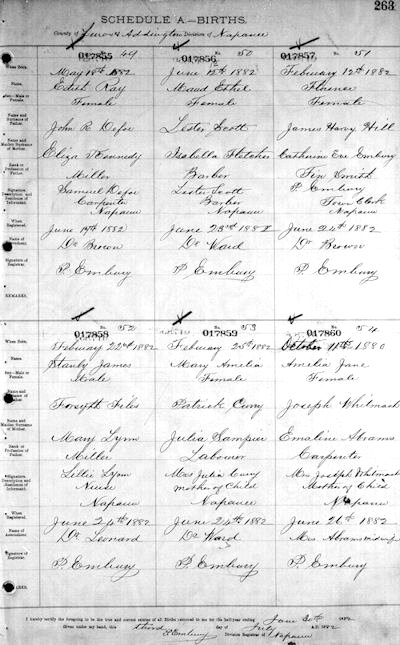 263
SCHEDULE A—BIRTHS.
County of Lennox & Addington Division of Napanee
017855 No. 49
017856 No. 50
017857 No. 51
When Born.
May 18th 1882
June 15th 1882
February 12th 1882
Name.
Edith Kay
Maud Ethel
Florence
Sex—Male or Female.
Female
Female
Female
Name and Surname of Father.
John R. Defoe
Lester Scott
James Harvy Hill
Name and Maiden Surname of Mother.
Eliza Kennedy
Isabella Fletcher
Catharine Eve Embury
Rank or Profession of Father.
Miller
Barber
Tin Smith
Signature, Description and Residence of Informant.
Samuel Defoe
Carpenter
Napanee
Lester Scott
Barber
Napanee
P. Embury
Town Clerk
Napanee
When Registered.
June 19th 1882
June 23rd 1882
June 24th 1882
Name of Accoucheur.
Dr Brown
Dr Ward
Dr Brown
Signature of Registrar.
P. Embury
P. Embury
P. Embury
REMARKS.
017858 No. 52
017859 No. 53
017860 No. 54
When Born.
February 22nd 1882
February 25th 1882
October 11th 1880
Name.
Stanly James
Mary Amelia
Amelia Jane
Sex—Male or Female.
Male
Female
Female
Name and Surname of Father.
Forsyth Files
Patrick Curry
Joseph Whitmarsh
Name and Maiden Surname of Mother.
Mary Lynn
Julia Sampier
Emaline Abrams
Rank or Profession of Father.
Miller
Labourer
Carpenter
Signature, Description and Residence of Informant.
Lettie Lynn
Nurse
Napanee
Mrs Julia Curry
Mother of Child
Napanee
Mrs Joseph Whitmarsh
Mother of Child
Napanee
When Registered.
June 24th 1882
June 24th 1882
June 26th 1882
Name of Accoucheur.
Dr Leonard
Dr Ward
Mrs Abrams midwife
Signature of Registrar.
P. Embury
P. Embury
P. Embury
REMARKS.
I hereby certify the foregoing to be the true and correct entries of all Births returned to me for the half-year ending June 30th 1882
Given under my hand, this third day of July A.D. 1882
P. Embury Division Registrar of Napanee